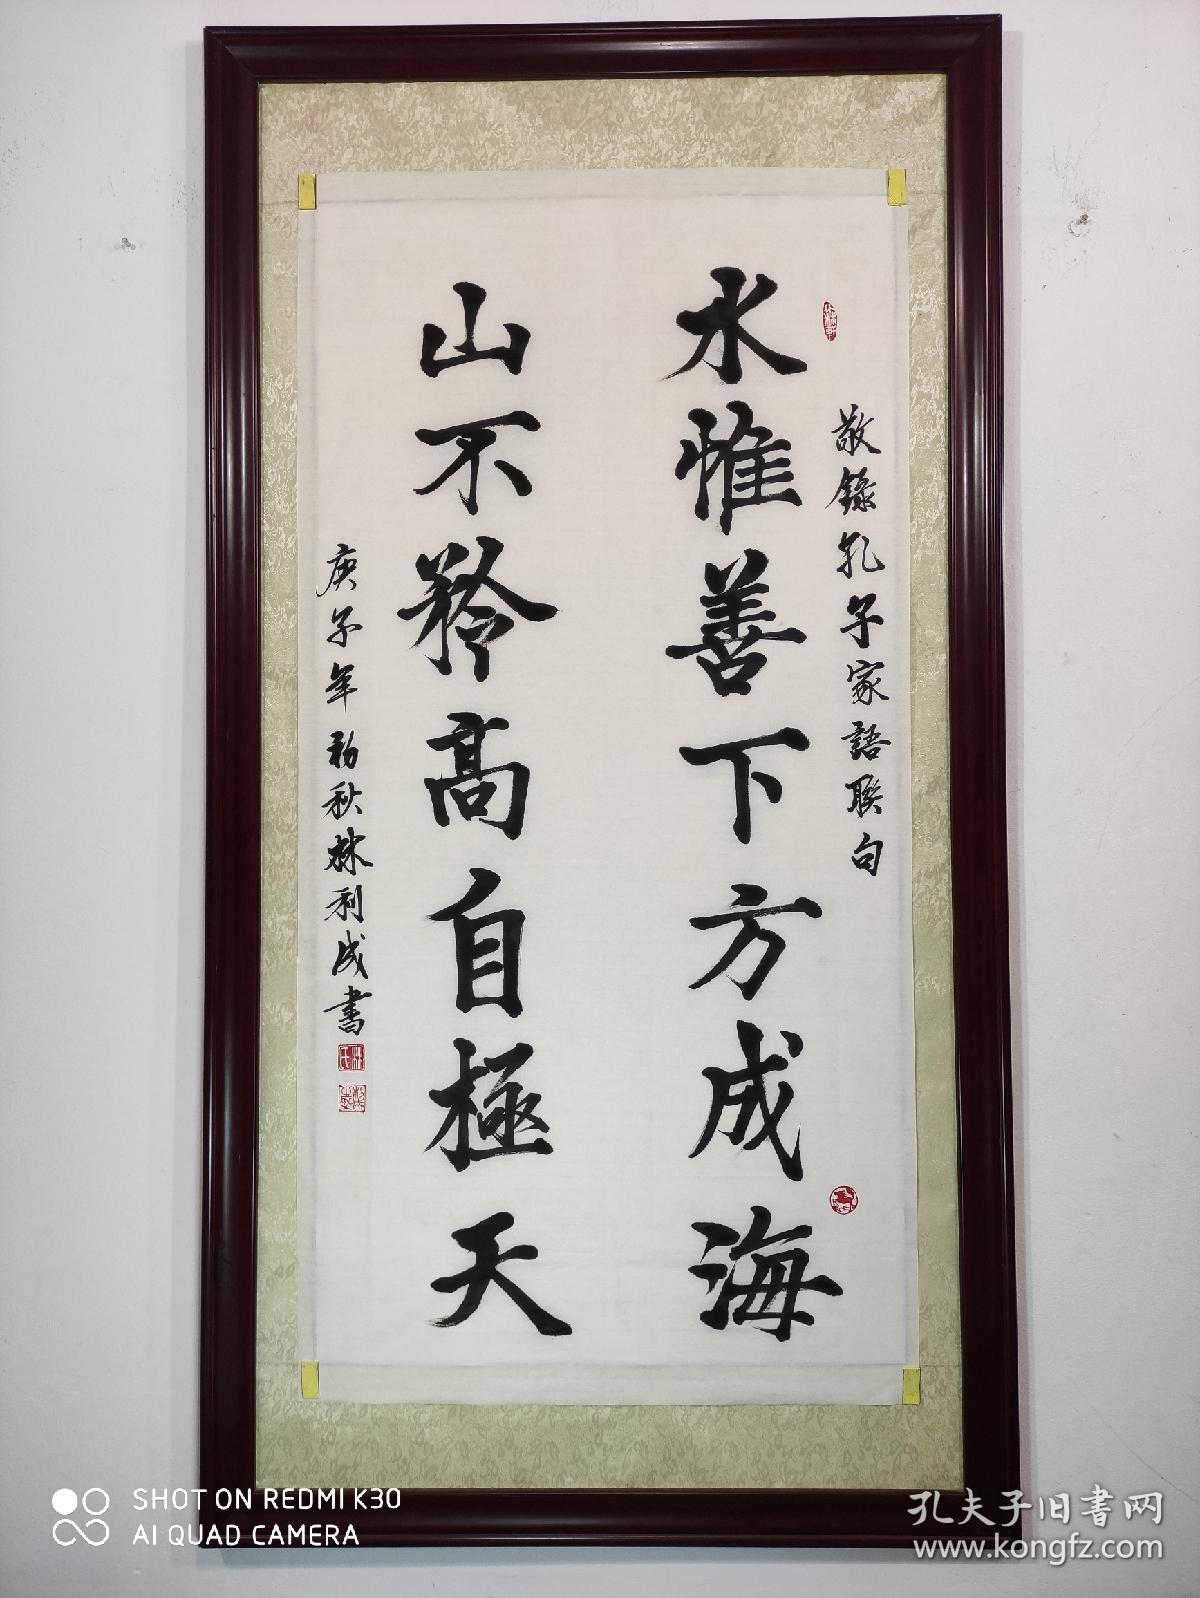 敬錄孔子家語聯句
水惟善下方成海
山不矜高自極天
庚子年初秋林利成書
SHOT ON REDMI K30
AI QUAD CAMERA
孔夫子旧书网
www.kongfz.com